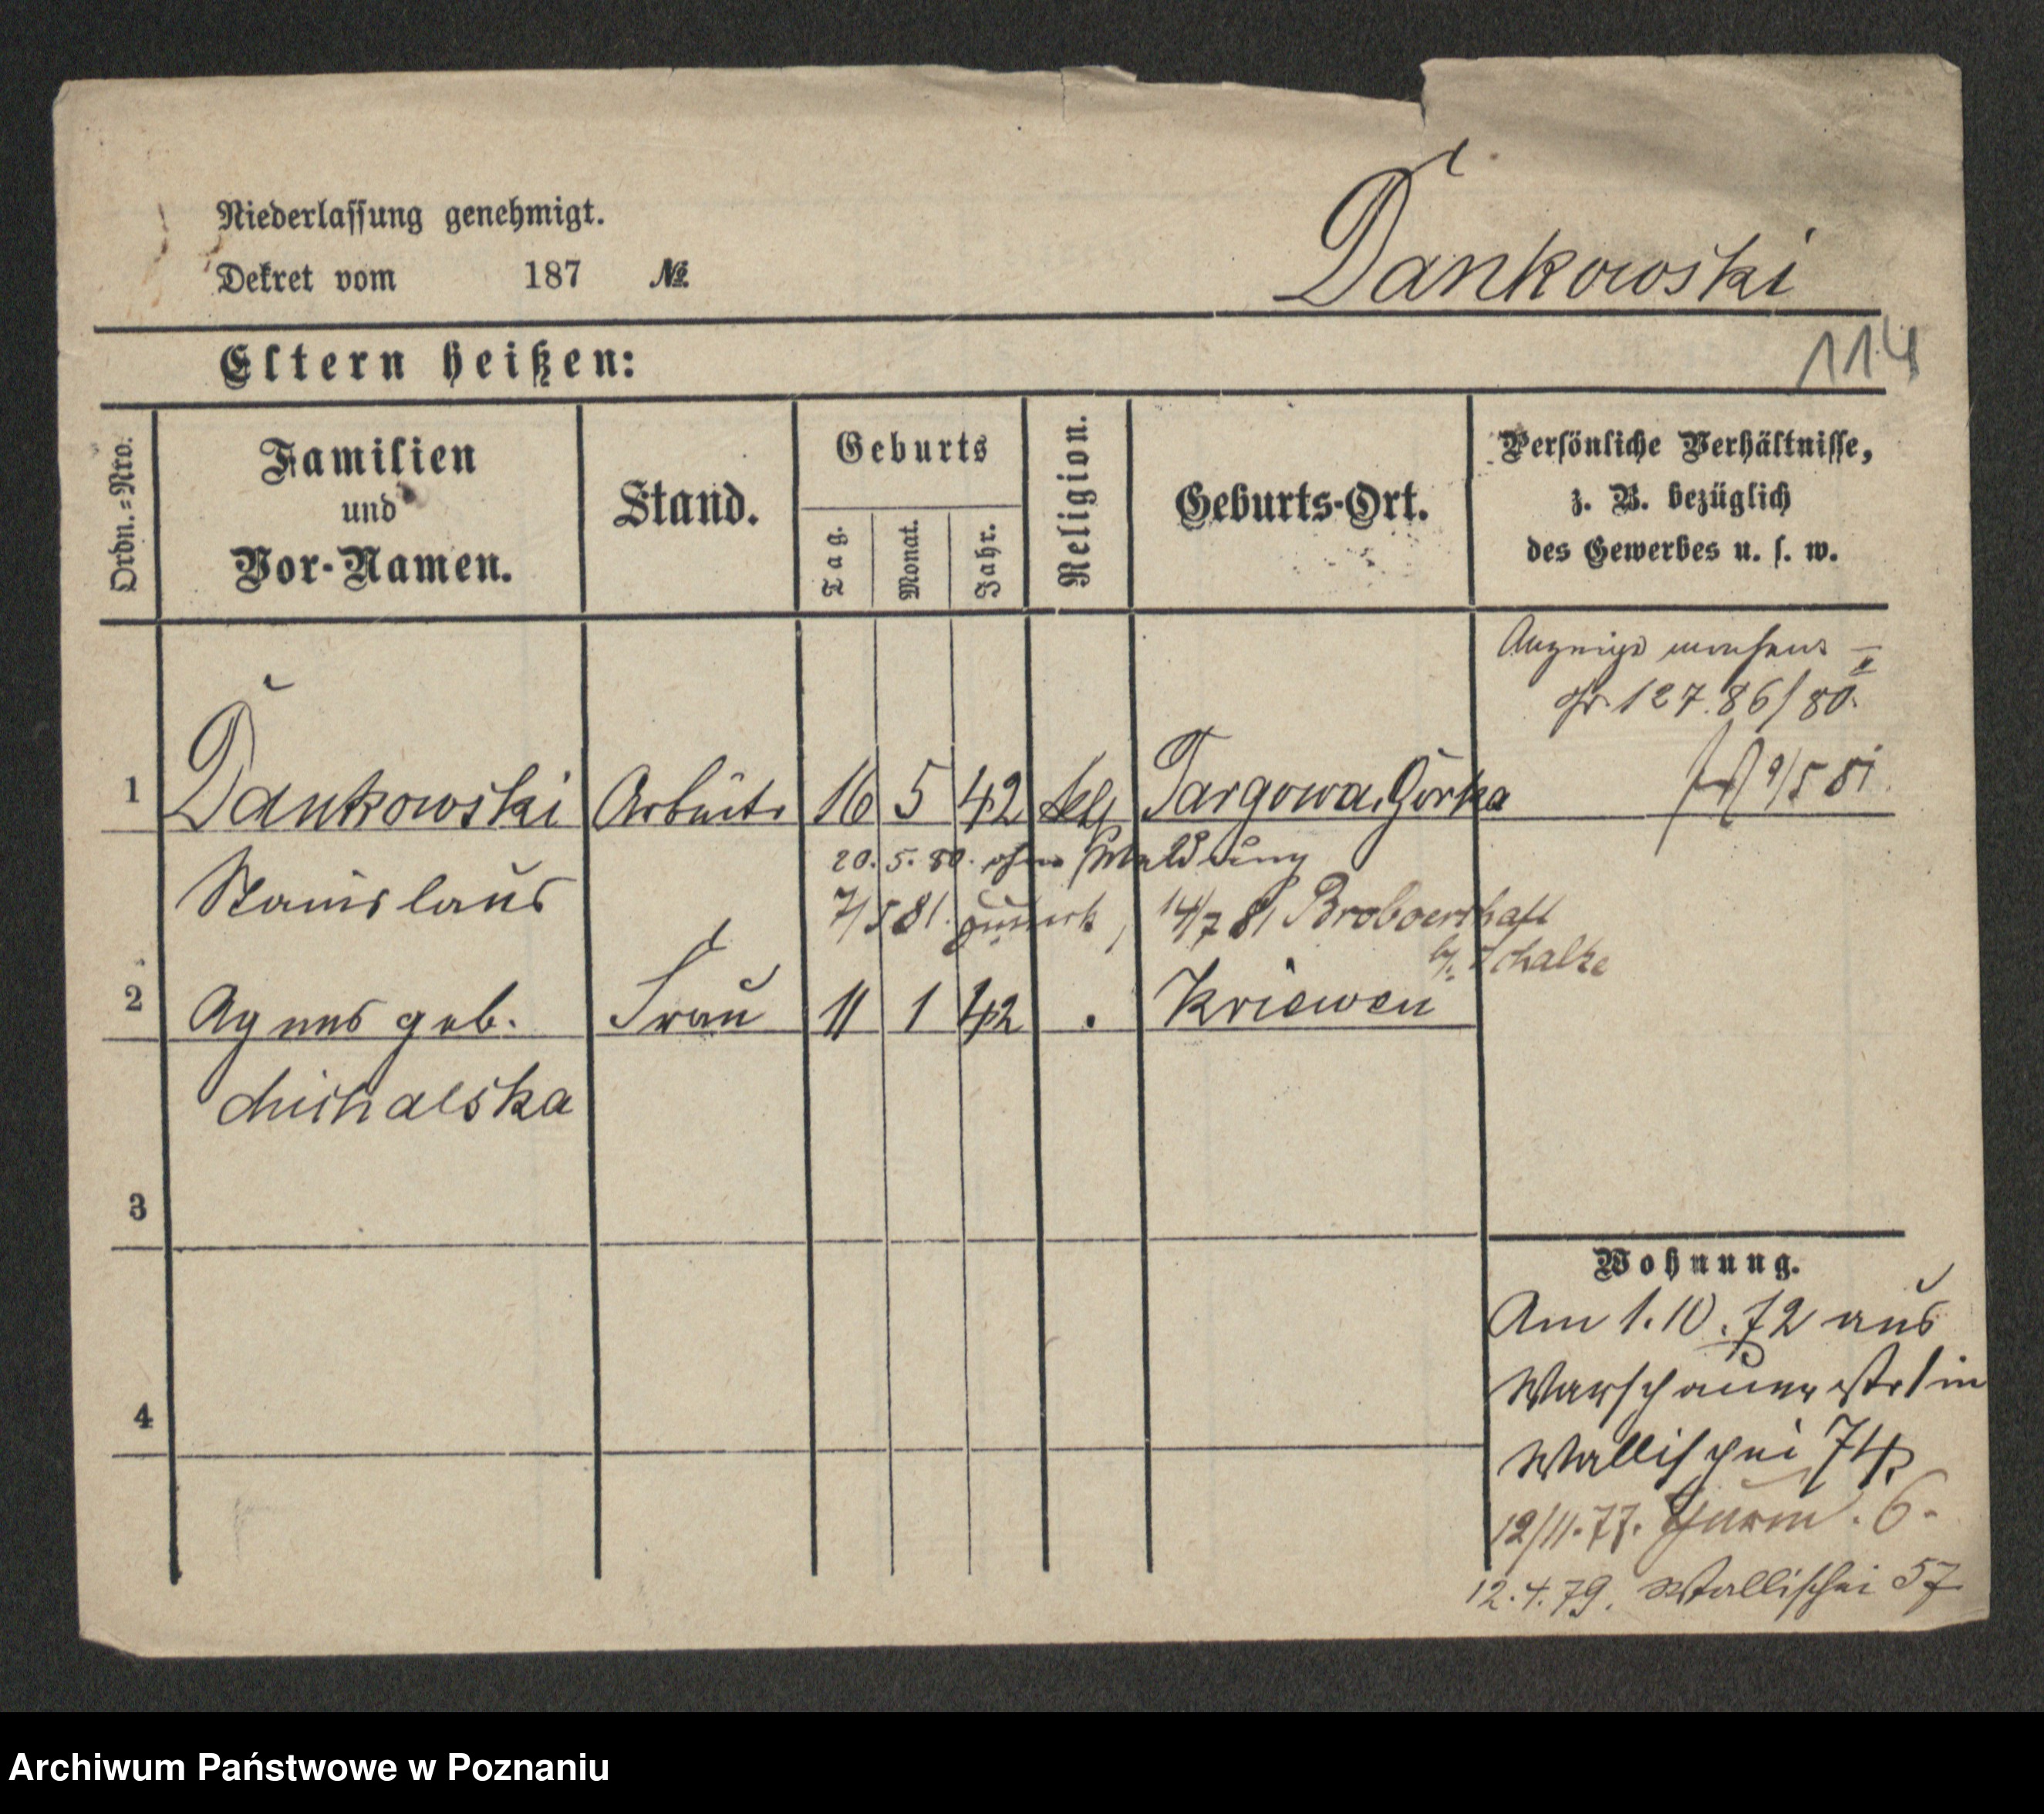 Niederlassung genehmigt.
Dekret vom 187 №
Dankowski
Eltern heißen:
114
Ordn.=Nro.
Familien
und
Vor-Namen.
Stand.
Geburts
Tag.
Monat.
Jahr.
Religion.
Geburts-Ort.
Persönliche Verhältnisse,
z. B. bezüglich
des Gewerbes u. s. w.
127.86/80.
1 Dankowski Arbeiter 16 5 42 Targowa Górka 9/5 81
20.5.80. ohne Meldung
Stanislaus
7/5 81. zurück, 14/7 81
b. Schalke
2 Agnes geb. Frau 11 1 42 Kriewen
Michalska
3
4
Wohnung.
Am 1.10.72 aus
Warschauerstr 1 in
Wallischei 74,
12/11.77. 6.
12.4.79. Wallischei 57
Archiwum Państwowe w Poznaniu